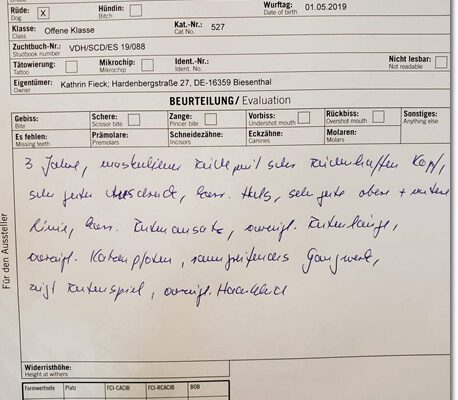 Rüde: X Hündin: Wurftag: 01.05.2019
Dog Bitch Date of birth
Klasse: Offene Klasse Kat.-Nr.: 527
Class Cat No.
Zuchtbuch-Nr.: VDH/SCD/ES 19/088
Studbook number
Tätowierung: Mikrochip: Ident.-Nr.: Nicht lesbar:
Tattoo Microchip Ident. No. Not readable
Eigentümer: Kathrin Fieck; Hardenbergstraße 27, DE-16359 Biesenthal
Owner
BEURTEILUNG/ Evaluation
Gebiss: Schere: Zange: Vorbiss: Rückbiss: Sonstiges:
Bite Scissor bite Pincer bite Undershot mouth Overshot mouth Anything else
Es fehlen: Prämolare: Schneidezähne: Eckzähne: Molaren:
Missing teeth Premolars Incisors Canines Molars
3 Jahre, maskuliner Rüde mit sehr rüdenhaften Kopf,
sehr guter Ausdruck, harm. Hals, sehr gute obere + untere
Linie, harm. Rutenansatz, vorzügl. Rutenlänge,
vorzügl. Katzenpfoten, raumgreifendes Gangwerk,
zeigt Rutenspiel, vorzügl.
Für den Aussteller
Widerristhöhe:
Height at withers
Formwertnote Platz FCI-CACIB FCI-RCACIB BOB